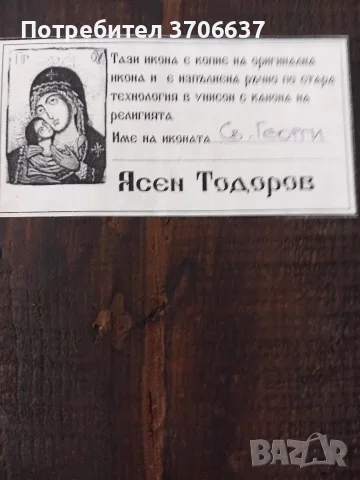 Потребител 3706637
Тази икона е копие на оригинална
икона и е изпълнена ръчно по стара
технология в унисон с канона на
религията
Име на иконата Св. Георги
Ясен Тодоров
BAZAR